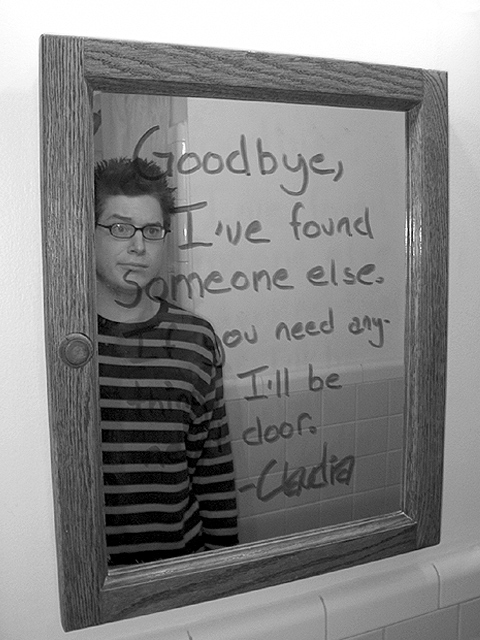 Goodbye,
I've found
Someone else.
If you need any-
thing I'll be
door.
-Claudia